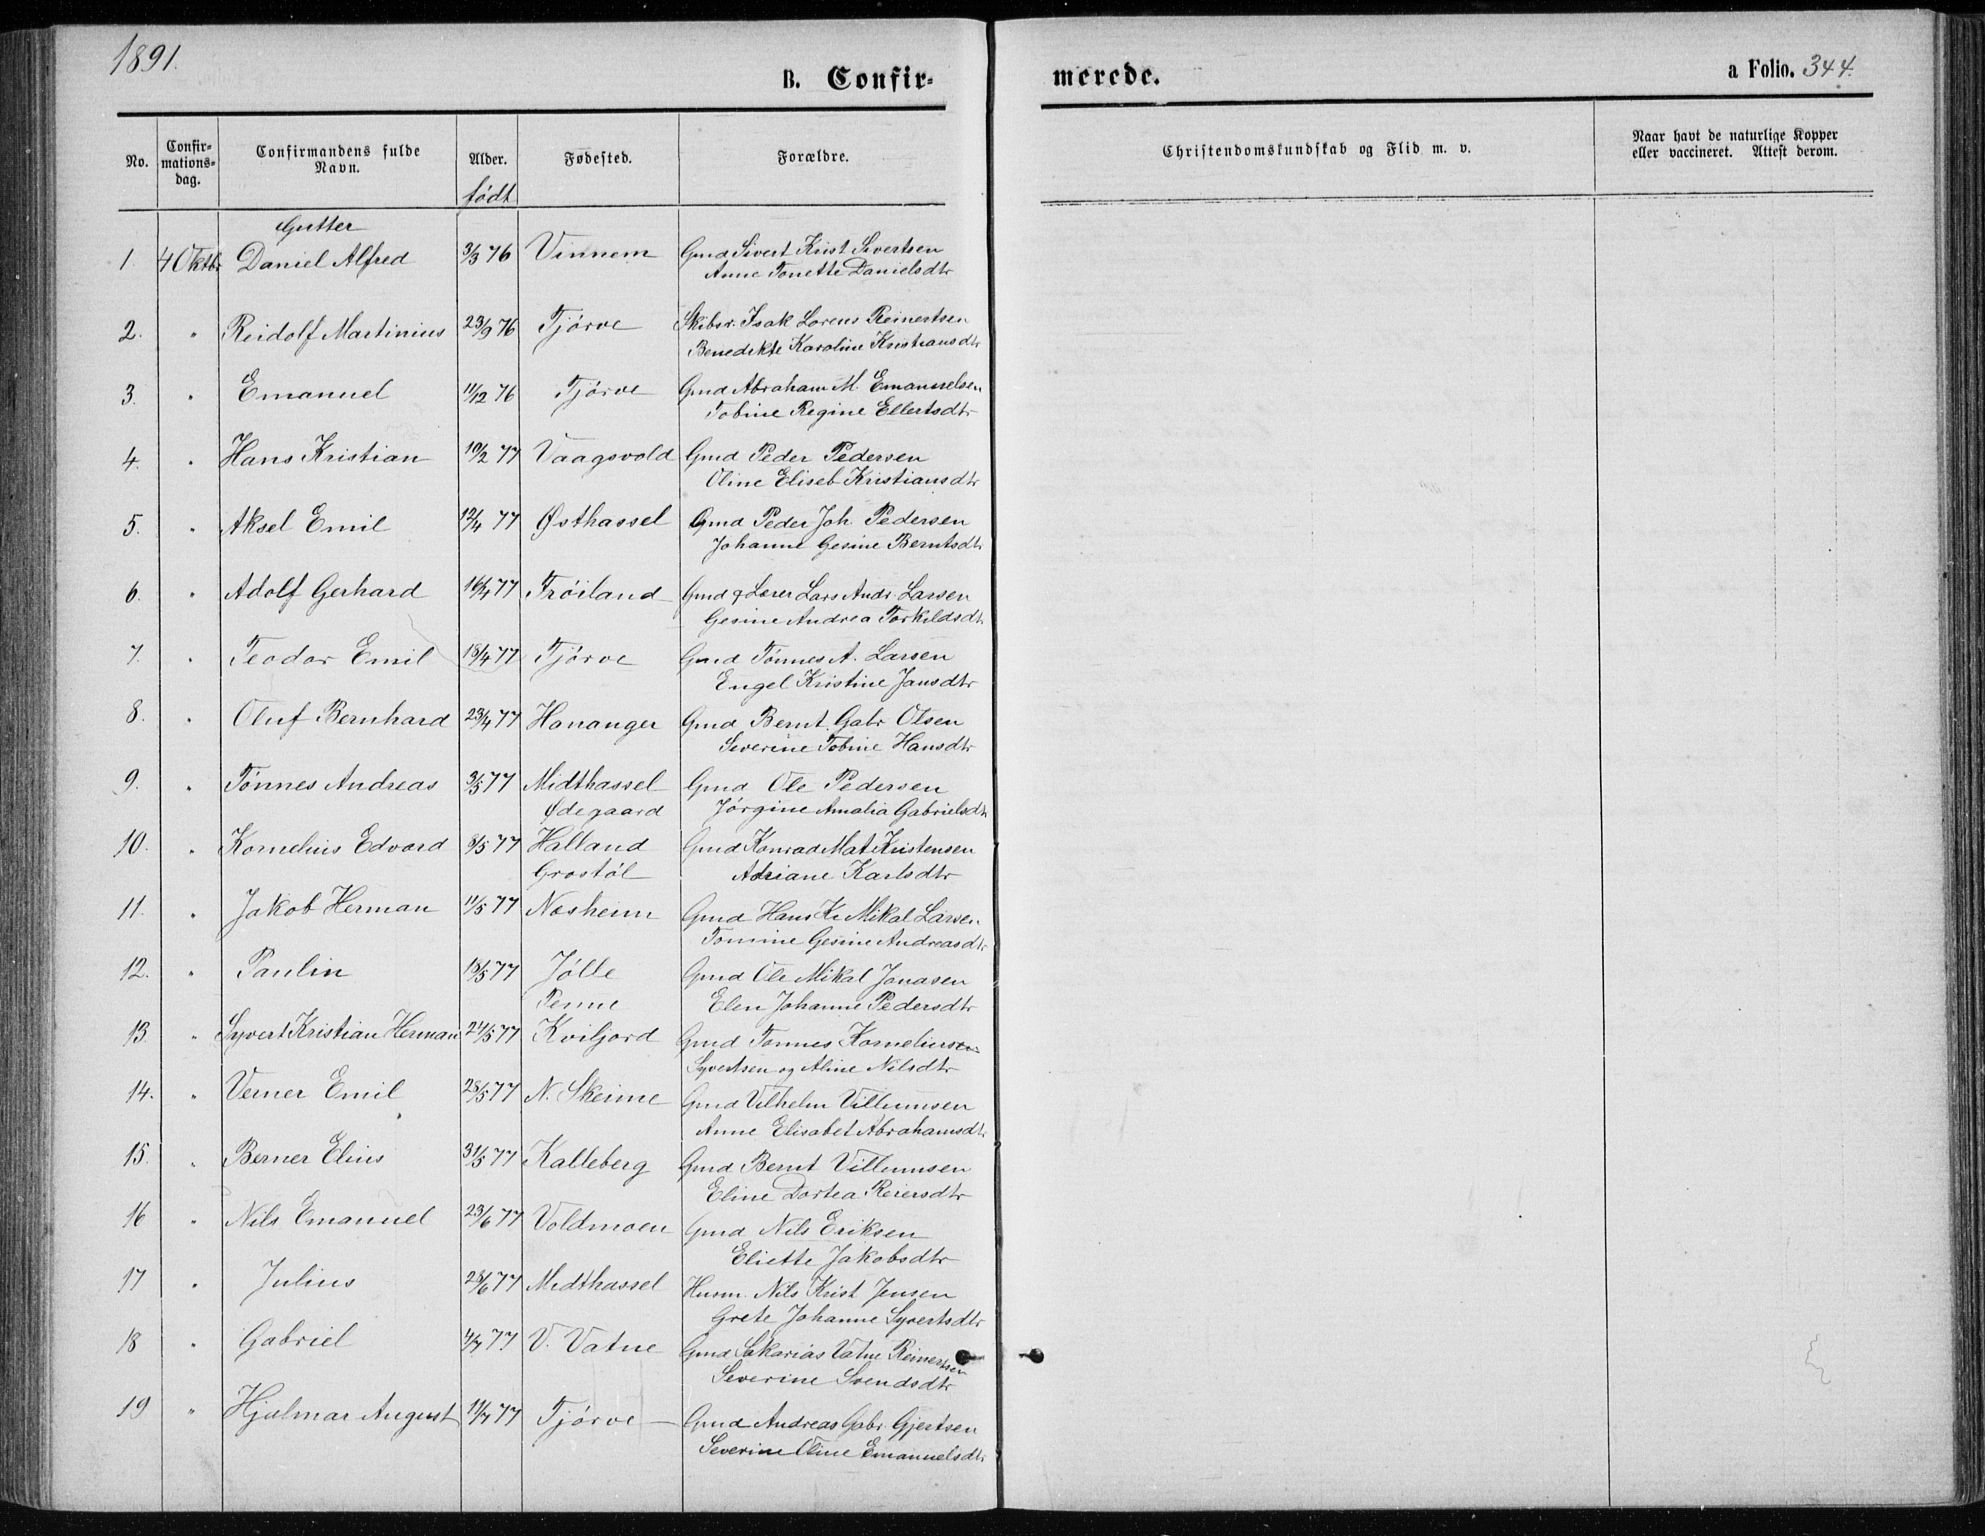 1891.
B. Confir-
merede.
a Folio. 344.
No.
Confir-
mations-
dag.
Confirmandens fulde
Navn.
Alder.
født
Fødested.
Forældre.
Christendomskundskab og Flid m. v.
Naar havt de naturlige Kopper
eller vaccineret. Attest derom.
Gutter
1 4 Oktbr Daniel Alfred 3/3 76 Vinnem Gmd Sivert Krist Sivertsen
Anne Tonette Danielsdtr
2. " Reidolf Martinius 23/9 76 Tjörve Skibsr. Isak Lorens Reinertsen
Benedikte Karoline Kristiansdtr
3. " Emanuel 11/12 76 Tjörve Gmd Abraham M. Emanuelsen
Tobine Regine Ellertsdtr
4. " Hans Kristian 10/2 77 Vaagsvold Gmd Peder Pedersen
Oline Eliseb Kristiansdtr
5. " Aksel Emil 12/4 77 Østhassel Gmd Peder Joh. Pedersen
Johanne Gesine Berntsdtr
6. " Adolf Gerhard 16/4 77 Tröiland Gmd & Lærer Lars Andr. Larsen
Gesine Andrea Torkildsdtr
7. " Teodor Emil 18/4 77 Tjörve Gmd Tönnes A. Larsen
Engel Kristine Jansdtr
8. " Oluf Bernhard 23/4 77 Hananger Gmd Bernt Gabr Olsen
Severine Tobine Hansdtr
9. " Tönnes Andreas 3/5 77 Midthassel Gmd Ole Pedersen
Ødegaard Jörgine Amalia Gabrielsdtr
10. " Kornelius Edvard 8/5 77 Halland Gmd Konrad Mat Kristensen
Grostöl Adriane Karlsdtr
11. " Jakob Herman 11/5 77 Næsheim Gmd Hans Kr Mikal Larsen
Tomine Gesine Andreasdtr
12. " Paulin 18/5 77 Jölle Gmd Ole Mikal Jonasen
Penne Elen Johanne Pedersdtr
13. " Syvert Kristian Herman 24/5 77 Kviljord Gmd Tönnes Korneliusen
Syvertsen og Aline Nilsdtr
14. " Verner Emil 28/5 77 N. Skeime Gmd Vilhelm Villumsen
Anne Elisabet Abrahamsdtr
15. " Berner Elius 31/5 77 Kalleberg Gmd Bernt Villumsen
Eline Dortea Reiersdtr
16 " Nils Emanuel 23/6 77 Voldmoen Gmd Nils Eriksen
Eliette Jakobsdtr
17 " Julius 28/6 77 Midthassel Husm. Nils Krist Jensen
Grete Johanne Syvertsdtr
18 " Gabriel 4/7 77 V. Vatne Gmd Sakarias Vatne Reinertsen
Severine Svendsdtr
19 " Hjalmar August 11/7 77 Tjörve Gmd Andreas Gabr. Gjertsen
Severine Oline Emanuelsdtr